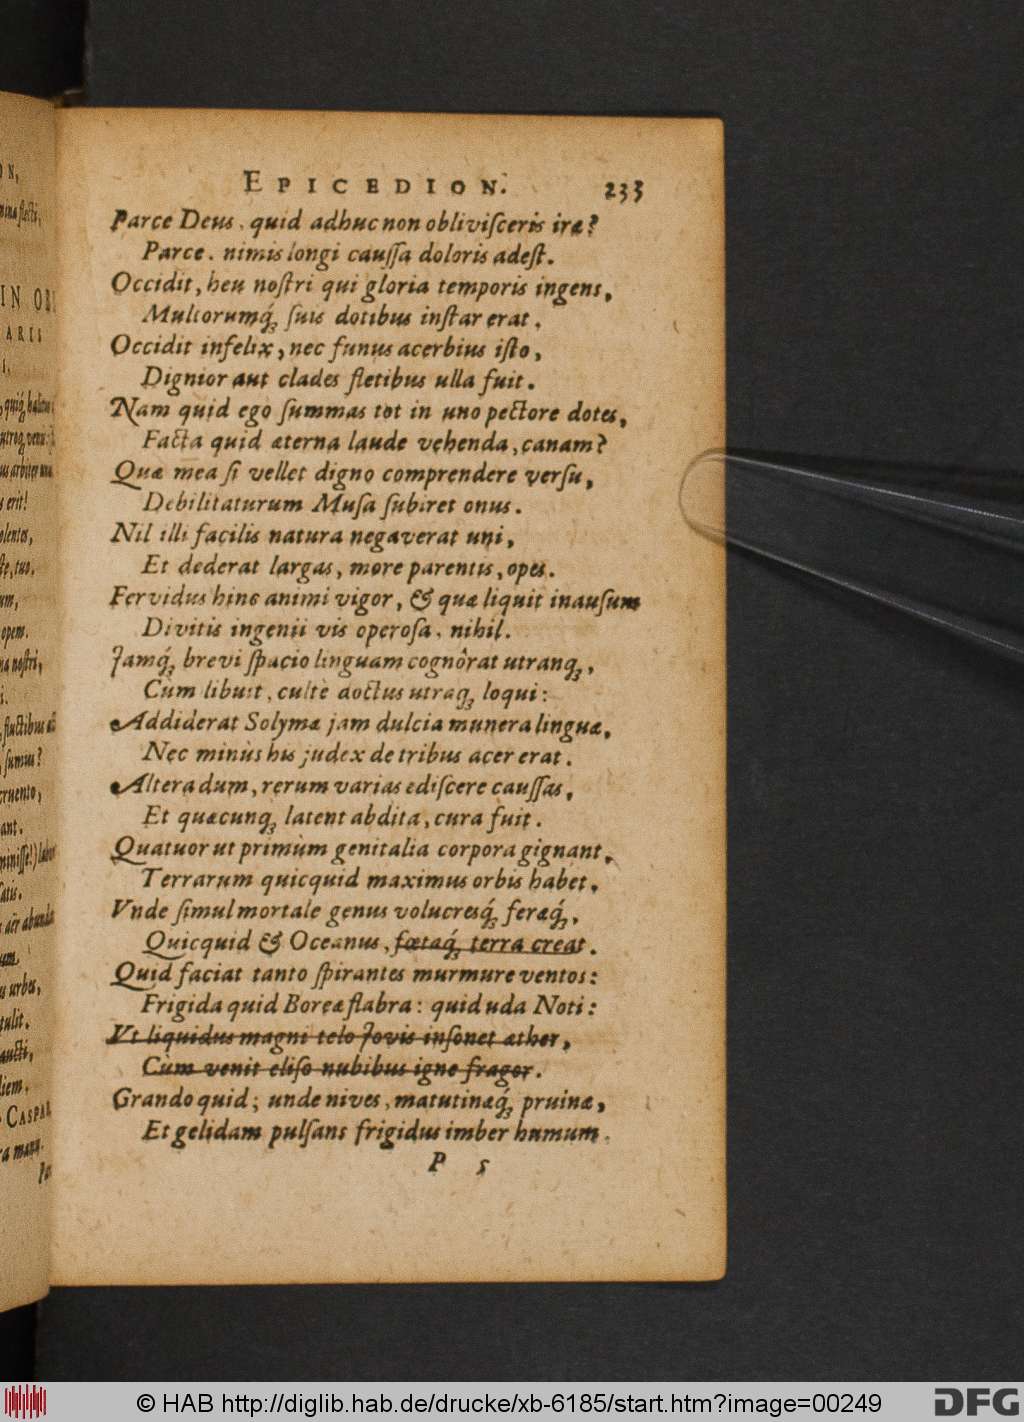 EPICEDION. 233
Parce Deus, quid adhuc non obliviſceris iræ?
Parce, nimis longi cauſſa doloris adeſt.
Occidit, heu noſtri qui gloria temporis ingens,
Multorumq́; ſuis dotibus inſtar erat.
Occidit infelix, nec funus acerbius iſto,
Dignior aut clades fletibus ulla fuit.
Nam quid ego ſummas tot in uno pectore dotes,
Facta quid æterna laude vehenda, canam?
Quæ mea ſi vellet digno comprendere verſu,
Debilitaturum Muſa ſubiret onus.
Nil illi facilis natura negaverat uni,
Et dederat largas, more parentis, opes.
Fervidus hinc animi vigor, & quæ liquit inauſum
Divitis ingenii vis operoſa, nihil.
Jamq́; brevi ſpacio linguam cognôrat utranq;,
Cùm libuit, cultè doctus utraq; loqui:
Addiderat Solymæ jam dulcia munera linguæ,
Nec minùs his judex de tribus acer erat.
Altera dum, rerum varias ediſcere cauſſas,
Et quæcunq; latent abdita, cura fuit.
Quatuor ut primùm genitalia corpora gignant,
Terrarum quicquid maximus orbis habet,
Vnde ſimul mortale genus volucresq́; feræq́;,
Quicquid & Oceanus, fœtaq́; terra creat.
Quid faciat tanto ſpirantes murmure ventos:
Frigida quid Boreæ flabra: quid uda Noti:
Vt liquidus magni telo Jovis inſonet æther,
Cùm venit eliſo nubibus igne fragor.
Grando quid; unde nives, matutinæq́; pruinæ,
Et gelidam pulſans frigidus imber humum.
P 5
© HAB http://diglib.hab.de/drucke/xb-6185/start.htm?image=00249
DFG